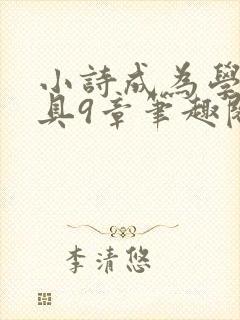 小詩成為學
具9章筆趣閣
李清悠